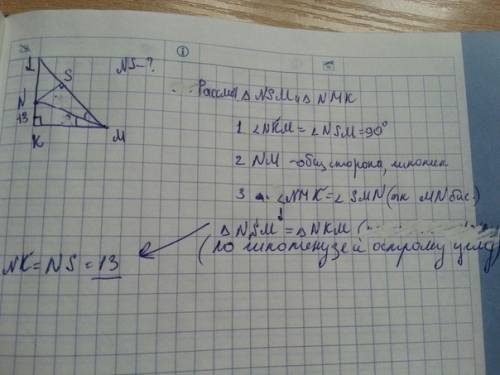 L
S
N
13
K
M
NS-?
1
Рассм △ NSM и △ NMK
1 ∠NKM = ∠NSM = 90°
2 NM - общ сторона,
3 ∠NMK = ∠SMN (тк MN бис.)
△ NSM = △ NKM (
(по гипотенузе и острому углу)
NK = NS = 13